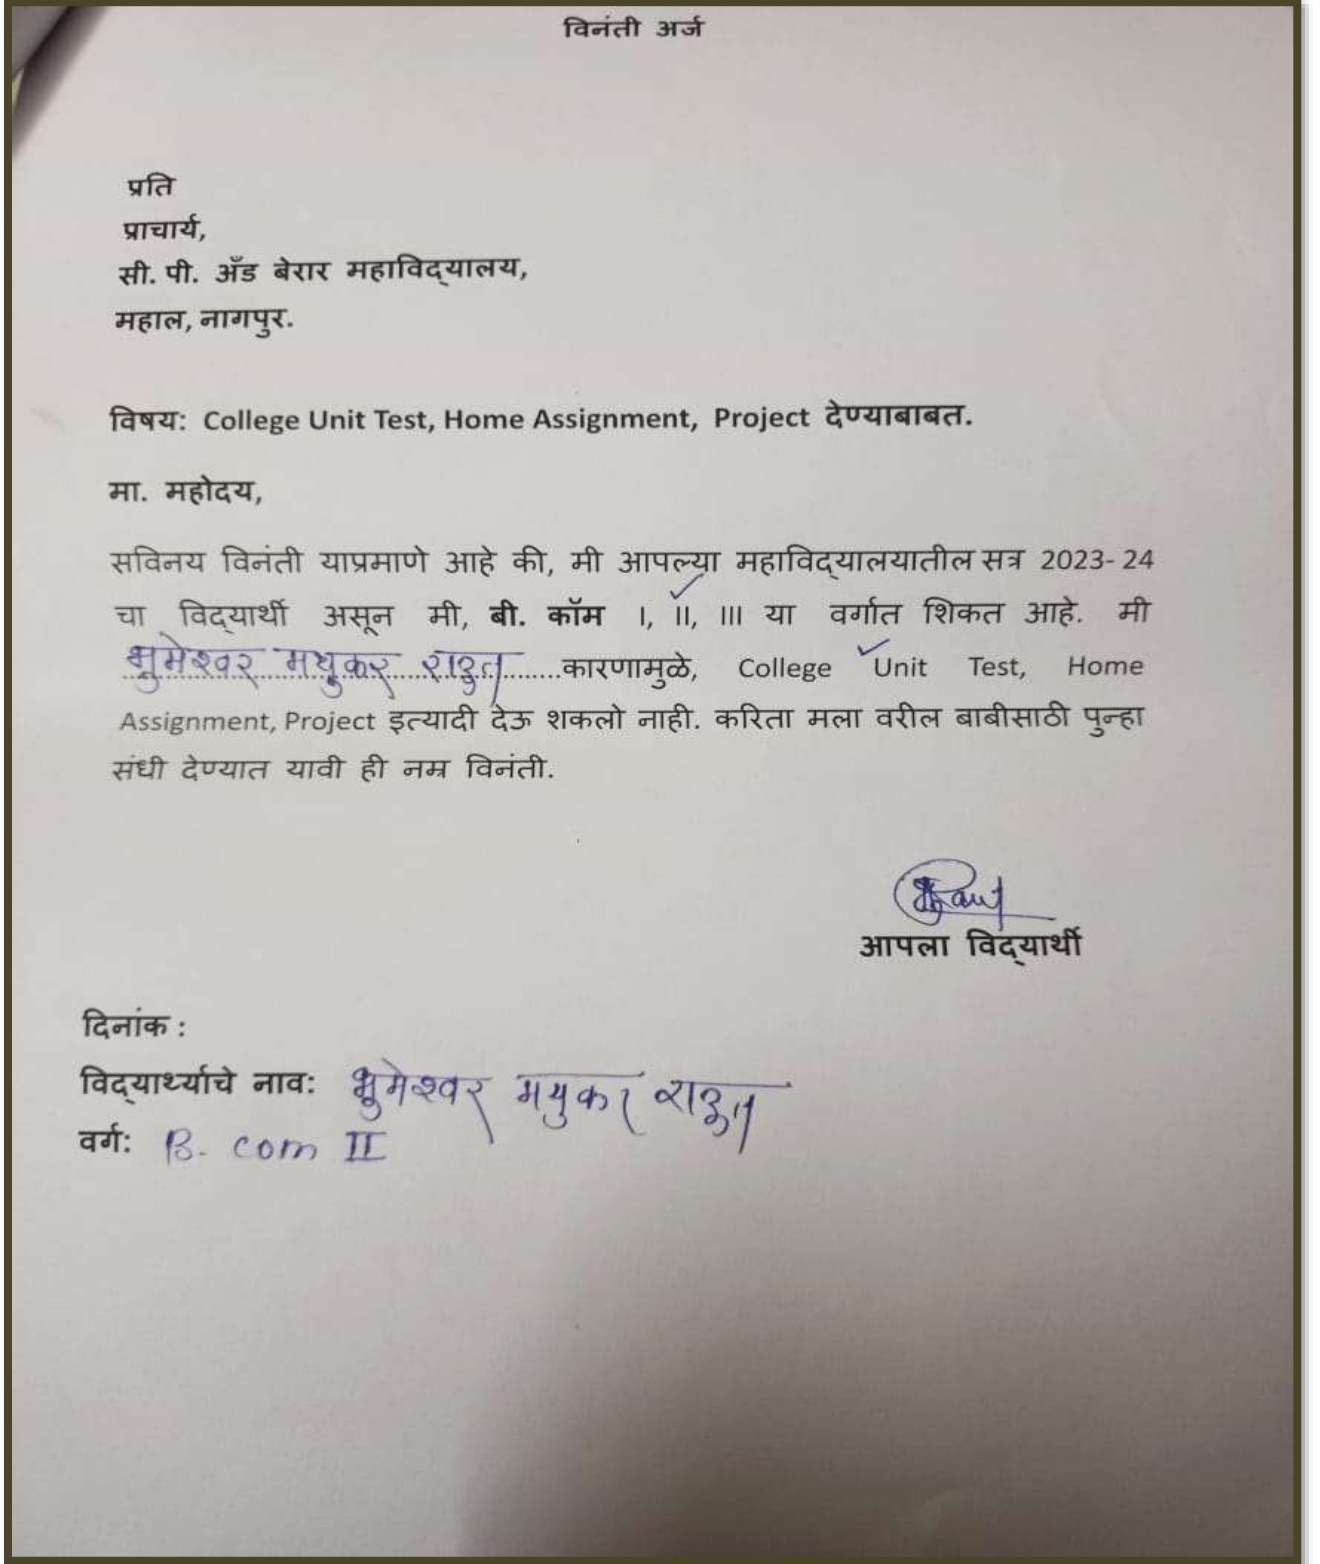 विनंती अर्ज
प्रति
प्राचार्य,
सी. पी. अँड बेरार महाविद्यालय,
महाल, नागपुर.
विषय: College Unit Test, Home Assignment, Project देण्याबाबत.
मा. महोदय,
सविनय विनंती याप्रमाणे आहे की, मी आपल्या महाविद्यालयातील सत्र 2023-24
चा विद्यार्थी असून मी, बी. कॉम I, II, III या वर्गात शिकत आहे. मी
भुमेश्वर मधुकर राऊत ..........कारणामुळे, College Unit Test, Home
Assignment, Project इत्यादी देऊ शकलो नाही. करिता मला वरील बाबीसाठी पुन्हा
संधी देण्यात यावी ही नम्र विनंती.
आपला विद्यार्थी
दिनांक :
विद्यार्थ्याचे नाव: भुमेश्वर मधुकर राऊत
वर्ग: B. com II